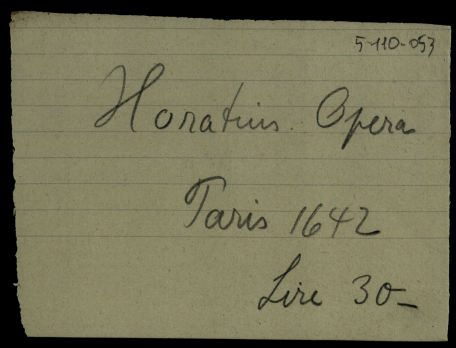 5-110-053
Horatius. Opera
Paris 1642
Lire 30-